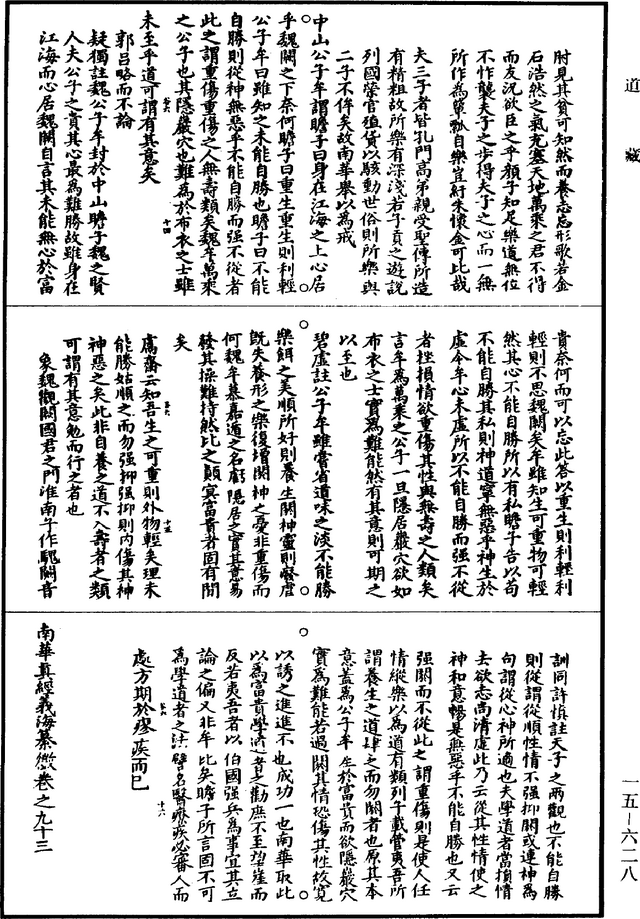 道藏
肘見其貧可知然而養志忘形歌若金
石浩然之氣充塞天地萬乘之君不得
而友況欲臣之乎顏子知足樂道無位
不怍襲夫子之步得夫子之心而一無
所作為簞瓢自樂宜紆朱懷金可比哉
夫三子者皆孔門高弟親受聖傳所造
有精粗故所樂有深淺若子貢之遊說
列國榮官殖貨以駭動世俗則所樂與
二子不侔矣故南華舉以為戒
中山公子牟謂瞻子曰身在江海之上心居
乎魏闕之下奈何瞻子曰重生重生則利輕
公子牟曰雖知之未能自勝也瞻子曰不能
自勝則從神無惡乎不能自勝而强不從者
此之謂重傷重傷之人無壽類矣魏牟萬乘
之公子也其隱巖穴也難為於布衣之士雖
未至乎道可謂有其意矣
十四
郭呂略而不論
疑獨註魏公子牟封於中山瞻子魏之賢
人夫公子之貴其心最為難勝故雖身在
江海而心居魏闕自言其未能無心於富
貴奈何而可以忘此答以重生則利輕利
輕則不思魏闕矣牟雖知生可重物可輕
然其心不能自勝所以有私瞻子告以苟
不能自勝其私則神道寧無惡乎神生於
虛今牟心未虛所以不能自勝而强不從
者挫損情欲重傷其性與無壽之人類矣
言牟為萬乘之公子一旦隱居巖穴欲如
布衣之士實為難能然有其意則可期之
以至也
碧虛註公子牟雖嘗省道味之淡不能勝
樂餌之美順所好則養生闕神靈則翳虛
既失養形之樂復增闕神之憂非重傷而
何魏牟慕嘉遁之名虧隱居之實其意易
發其操難持然比之顛冥富貴者固有間
矣
十五
鬳齋云知吾生之可重則外物輕矣理未
能勝姑順之而勿强抑强抑則內傷其神
神惡之矣此非自養之道不入壽者之類
可謂有其意勉而行之者也
象魏觀闕國君之門淮南子作魏闕音
訓同許慎註天子之兩觀也不能自勝
則從謂從順性情不强抑闕或連神為
句謂從心神所適也夫學道者當損情
去欲忘尚清虛此乃云從其性情使之
神和意暢是無惡乎不能自勝也又云
强闕而不從此之謂重傷則是使人任
情縱樂以為道有類列子載管夷吾所
謂養生之道肆之而勿闕者也原其本
意蓋為公子牟生於富貴而欲隱巖穴
實為難能若過闕其情恐傷其性故寬
以誘之進進不已成功一也南華取此
以為富貴學道者之勸庶不至望崖而
反若夷吾者以伯國强兵為事宜其立
論之偏又非牟比矣瞻子所言固不可
為學道者之法譬名醫療疾必審人而
處方期於瘳疾而已
十六
南華真經義海纂微卷之九十三
一五—六二八